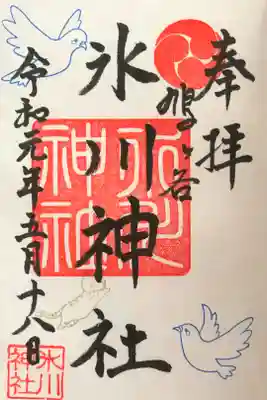 奉拝
鳩ヶ谷
氷川神社
令和元年五月十八日
氷川
神社
氷川
神社